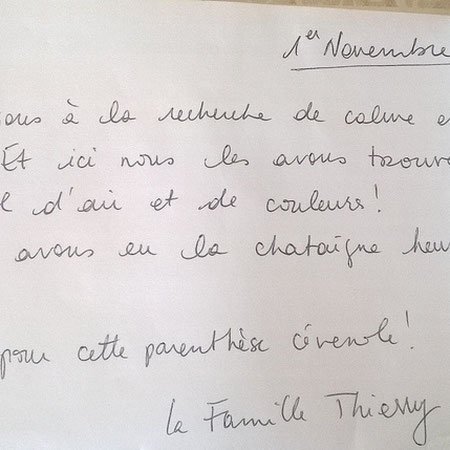 1er Novembre
à la recherche de calme
Et ici nous les avons trouv
d'air et de couleurs!
avons eu la chataîgne heu
pour cette parenthèse cévenole!
la Famille Thierry